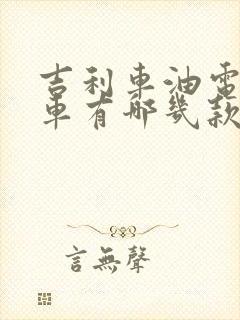 吉利車油電
車有哪幾款
言無聲